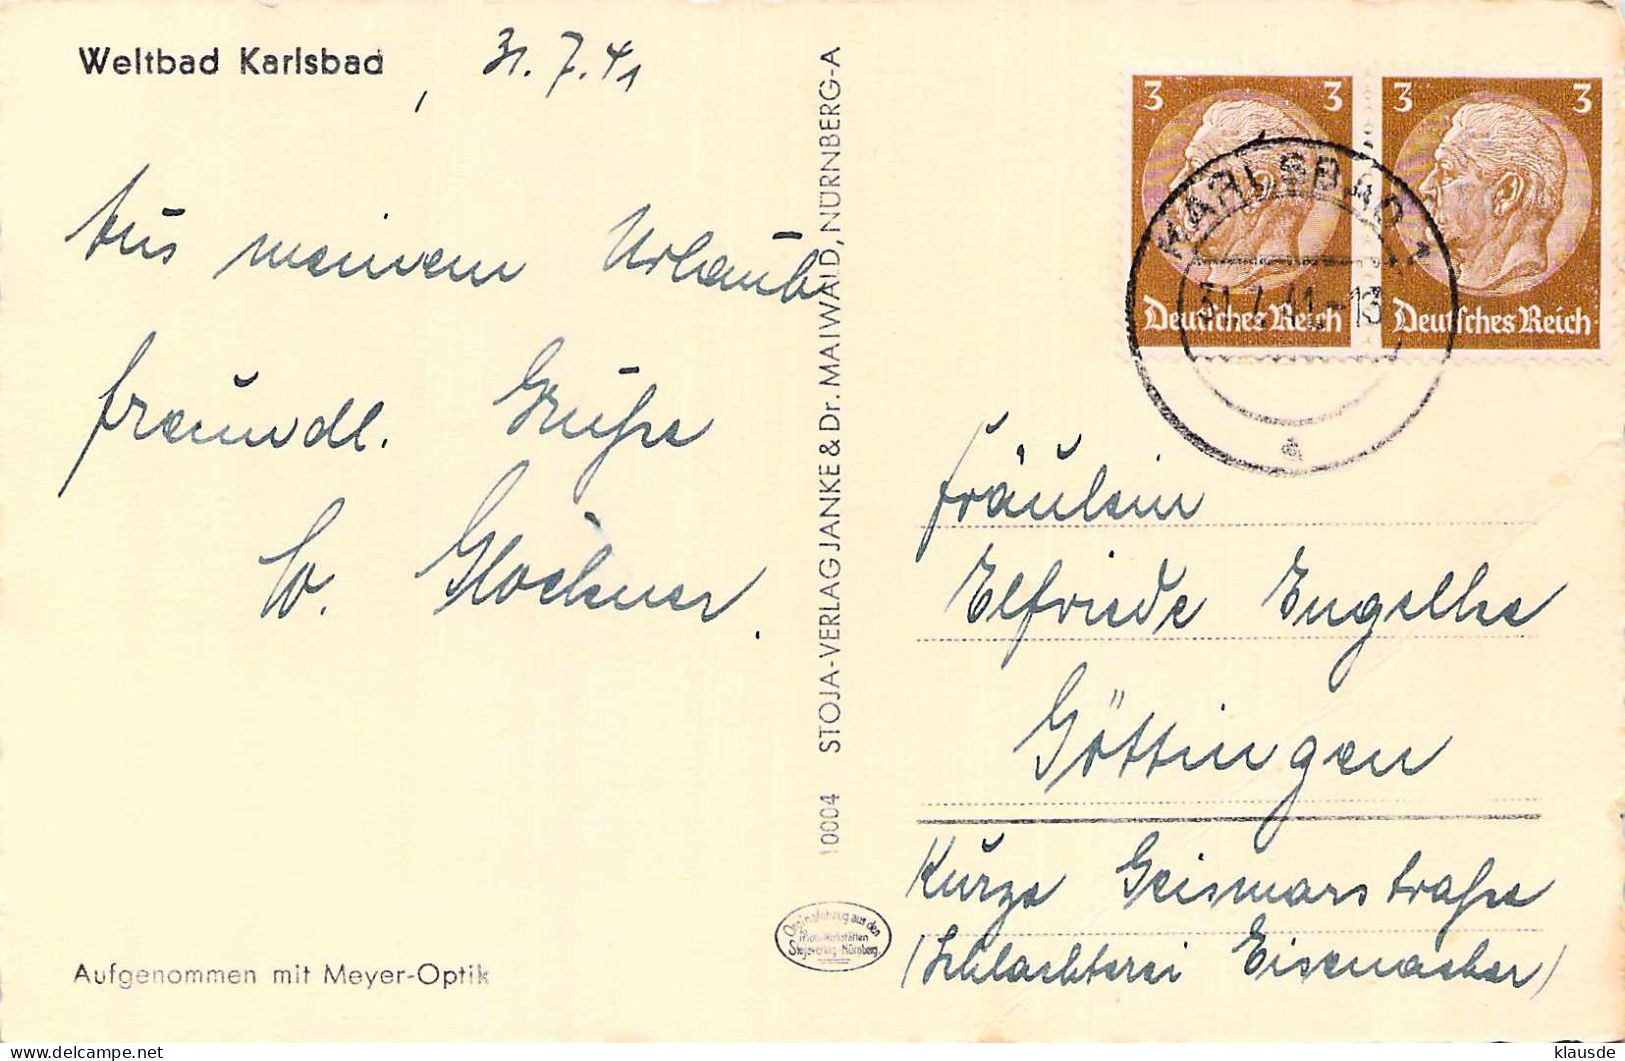 Weltbad Karlsbad, 31.7.41
Aus meinem Urlaub
freundl. Grüße
W. Glockner.
Aufgenommen mit Meyer-Optik
10004 STOJA-VERLAG JANKE & Dr. MAIWALD, NÜRNBERG-A
Originalabzug aus den
Photo-Werkstätten
Stojaverlag-Nürnberg
3 3
Deutsches Reich
3 3
Deutsches Reich
KARLSBAD 1
31.7.41.-13
a
Fräulein
Elfriede Engelke
Göttingen
Kurze Geismarstraße
(Schlachterei Eisenacher)
klausde